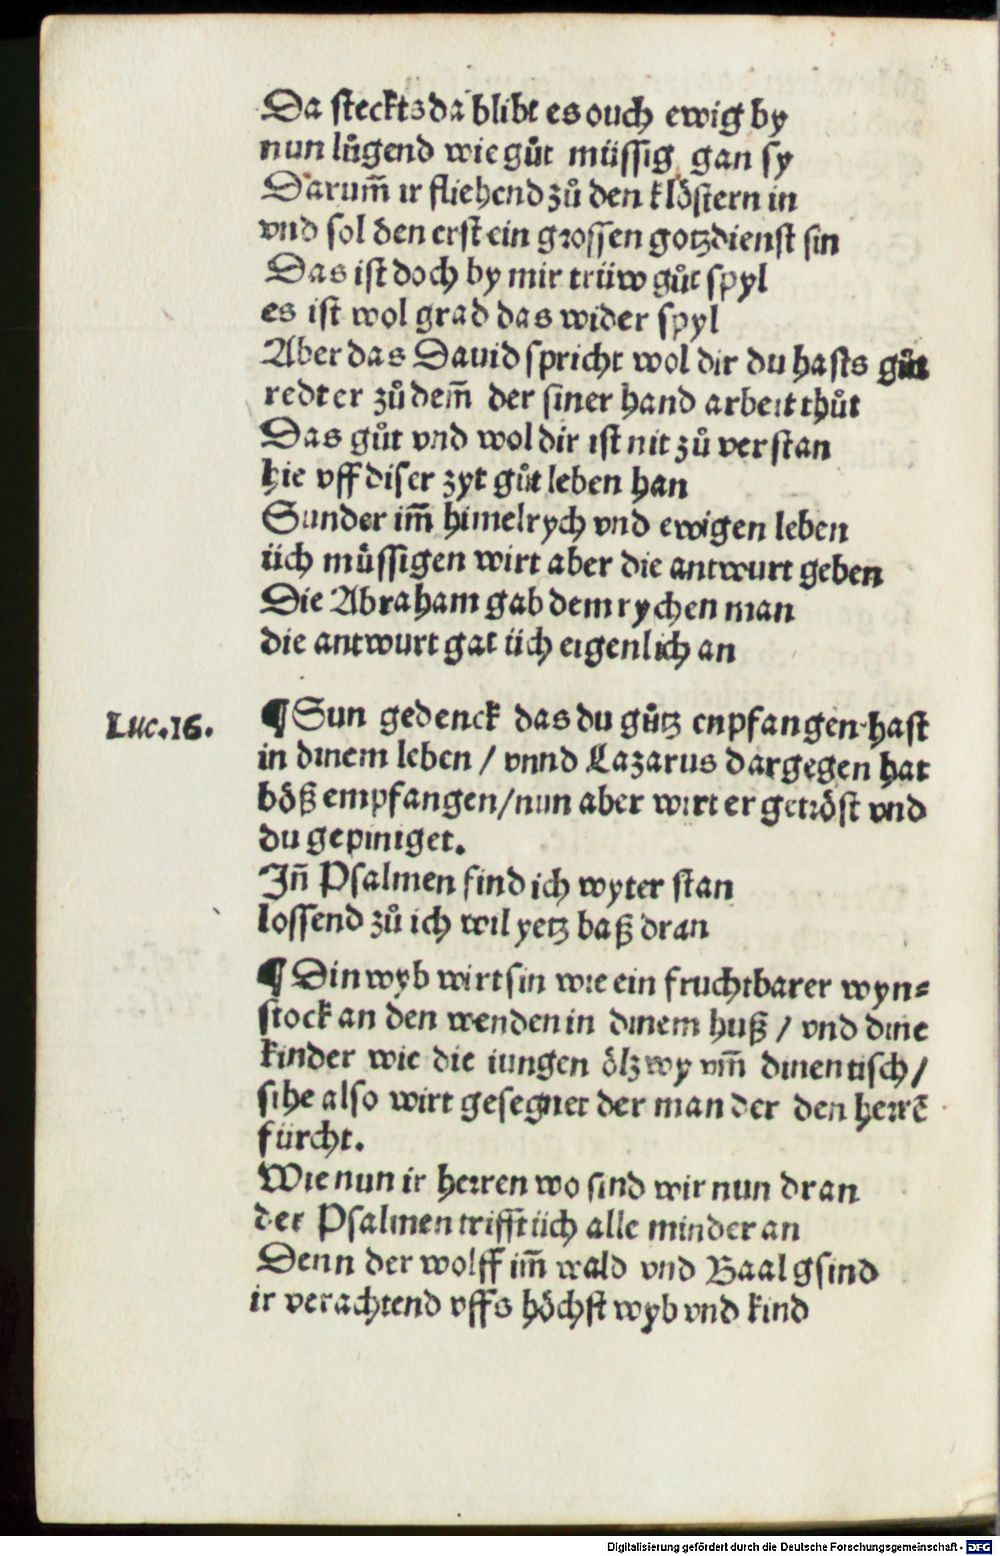 Da steckts da blibt es ouch ewig by
nun lůgend wie gůt müssig gan sy
Darum̃ ir fliehend zů den klöstern in
vnd sol den erst ein grossen gotzdienst sin
Das ist doch by mir trüw gůt spyl
es ist wol grad das wider spyl
Aber das Dauid spricht wol dir du hasts gůt
redt er zů dem̃ der siner hand arbeit thůt
Das gůt vnd wol dir ist nit zů verstan
hie vff diser zyt gůt leben han
Sunder im̃ himelrych vnd ewigen leben
üch müssigen wirt aber die antwurt geben
Die Abraham gab dem rychen man
die antwurt gat üch eigenlich an
Luc.16.
¶ Sun gedenck das du gůtz enpfangen hast
in dinem leben / vnnd Lazarus dargegen hat
böß empfangen/nun aber wirt er getröst vnd
du gepiniget.
Jn̄ Psalmen find ich wyter stan
lossend zů ich wil yetz baß dran
¶ Din wyb wirt sin wie ein fruchtbarer wyn⸗
stock an den wenden in dinem huß / vnd dine
kinder wie die iungen ölzwy vm̃ dinen tisch /
sihe also wirt gesegnet der man der den herrē
fürcht.
Wie nun ir herren wo sind wir nun dran
der Psalmen trifft üch alle minder an
Denn der wolff im̃ wald vnd Baal gsind
ir verachtend vffs höchst wyb vnd kind
Digitalisierung gefördert durch die Deutsche Forschungsgemeinschaft - DFG